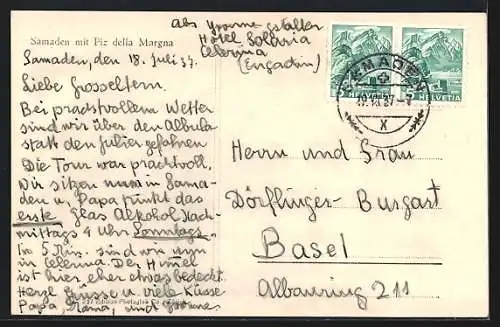 Samaden mit Piz della Margna
Abs Yvonne Gstalter
Hôtel Solaria
Celerina
(Engadin)
Samaden, den 18. Juli 37.
Liebe Grosseltern.
Bei prachtvollem Wetter
sind wir über den Albula
statt den Julier gefahren
Die Tour war prachtvoll,
Wir sitzen nun in Sama-
den u. Papa das
erste Glas Alkohol Nach-
mittags 4 Uhr Sonntags.
In 5 Min. sind wir nun
in Celerina. Der Himmel
ist hier eher etwas bedeckt.
Herzl. Grüsse u. viele Küsse
Papa, Mama, und Yvonne
SAMADEN
HELVETIA
X
Herrn und Frau
Dörflinger-Burgart
Basel
Albanring 211